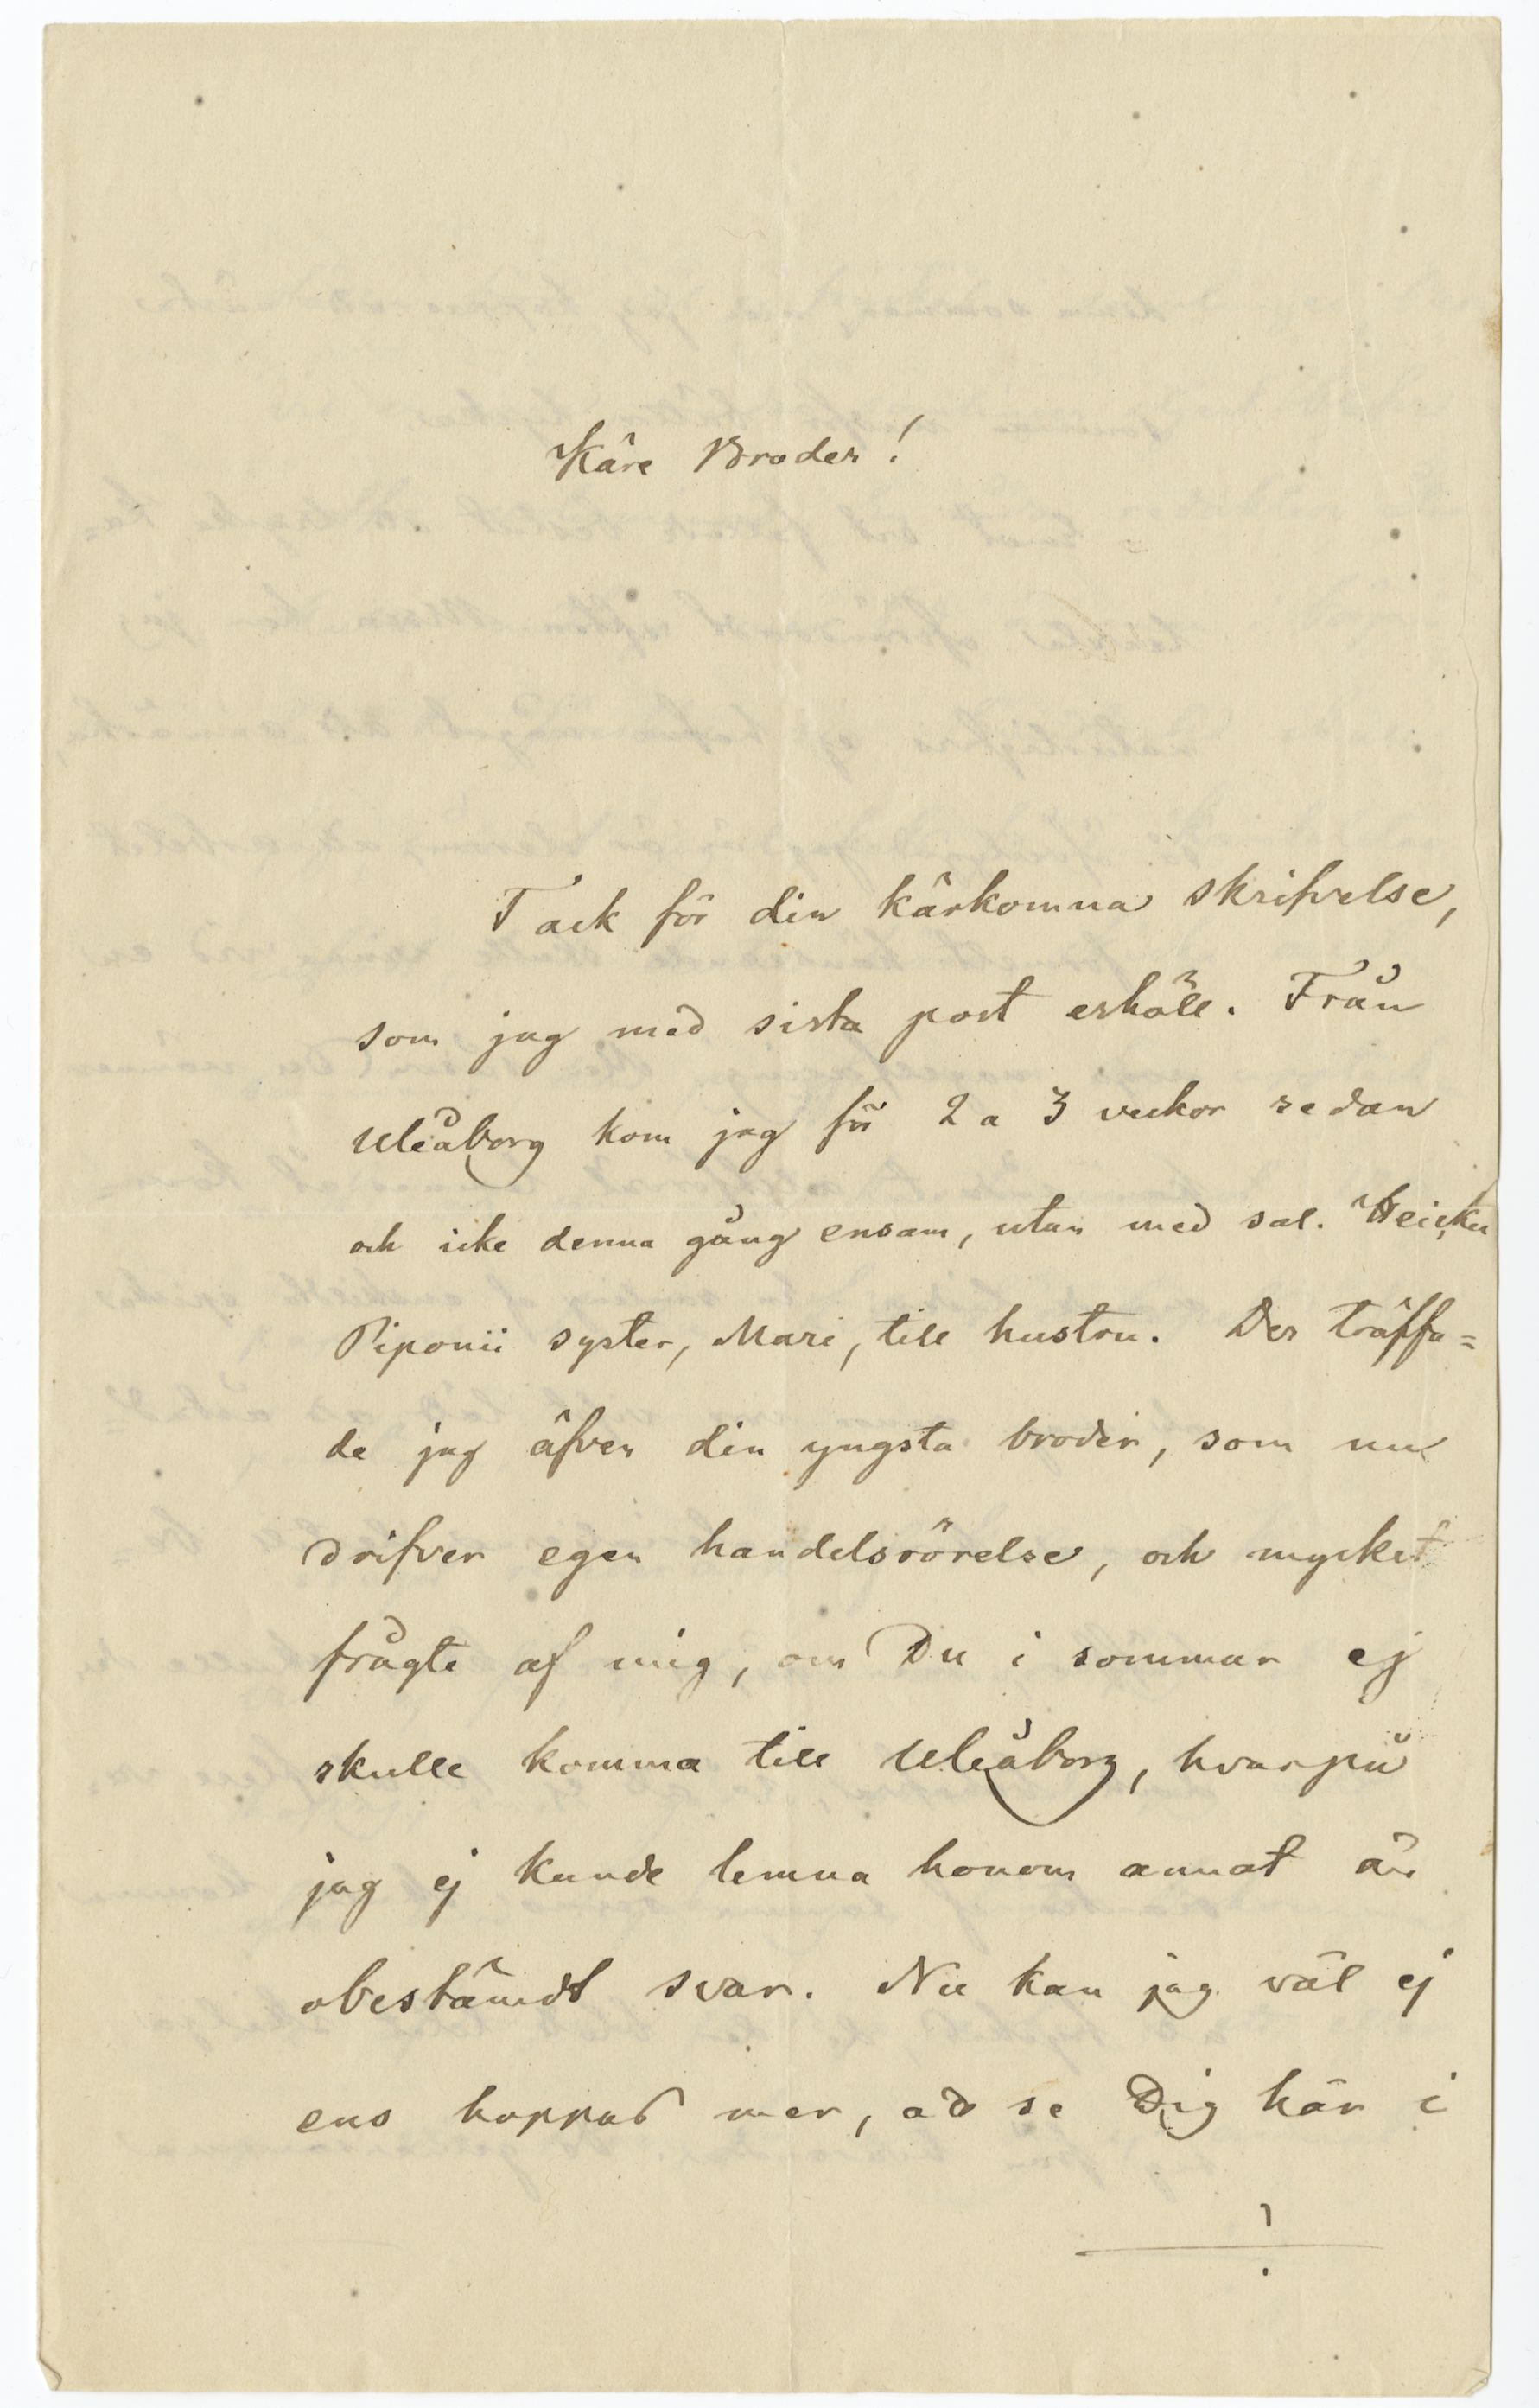 Käre Broder!
Tack för din kärkomna skrifvelse,
som jag med sista post erhöll. Från
Uleåborg kom jag för 2 a 3 veckor sedan
och icke denna gång ensam, utan med sal. Heicku
Piponii syster, Mari, till hustru. Der träffa=
de jag äfven din yngsta broder, som nu
drifver egen handelsrörelse, och mycket
frågte af mig, om Du i sommar ej
skulle komma till Uleåborg, hvarpå
jag ej kunde lemna honom annat än
obestämdt svar. Nu kan jag väl ej
ens hoppas mer, att se Dig här i